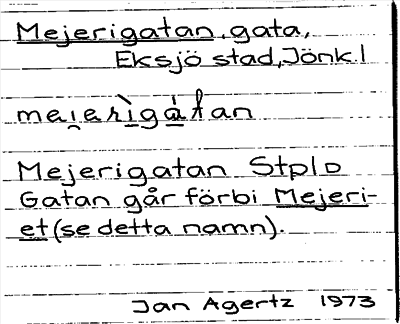 Mejerigatan, gata,
Eksjö stad, Jönk.l
mei̯erìgátan
Mejerigatan Stplo
Gatan går förbi Mejeri-
et (se detta namn).
Jan Agertz 1973